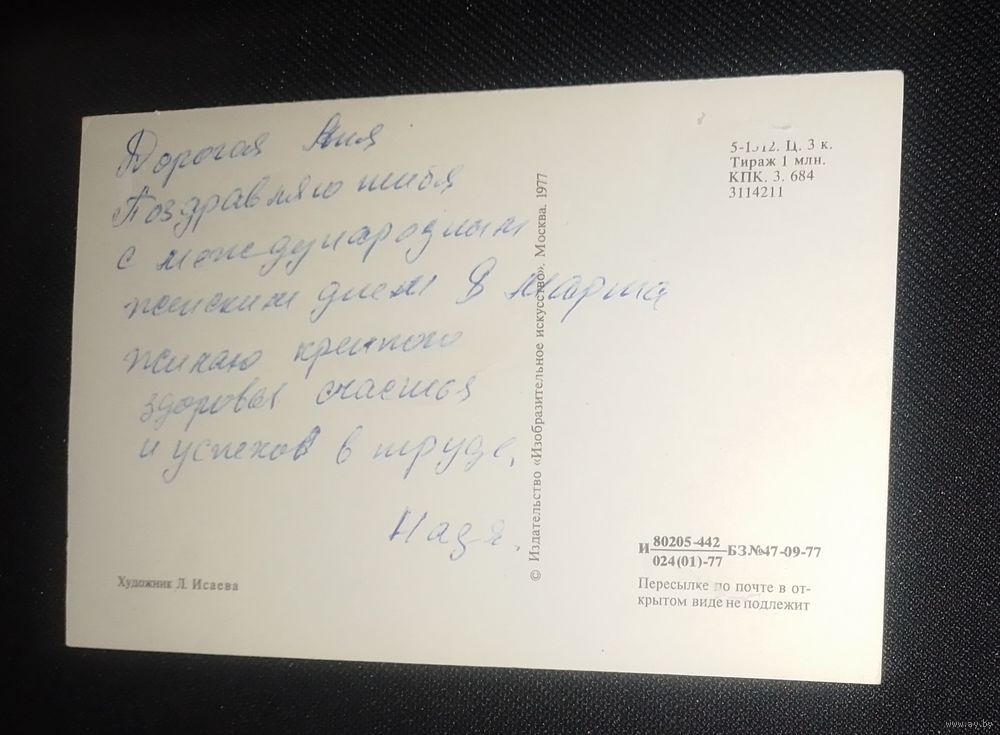 Дорогая Яня
Поздравляю тибя
с международным
женским днем 8 марта
жилаю крепкого
здоровья счастья
и успехов в труде.
Надя.
Художник Л. Исаева
© Издательство «Изобразительное искусство». Москва. 1977
Ц. 3 к.
Тираж 1 млн.
КПК. 3. 684
3114211
И 80205-442 БЗ№47-09-77
024(01)-77
Пересылке по почте в от-
крытом виде не подлежит
www.ay.by